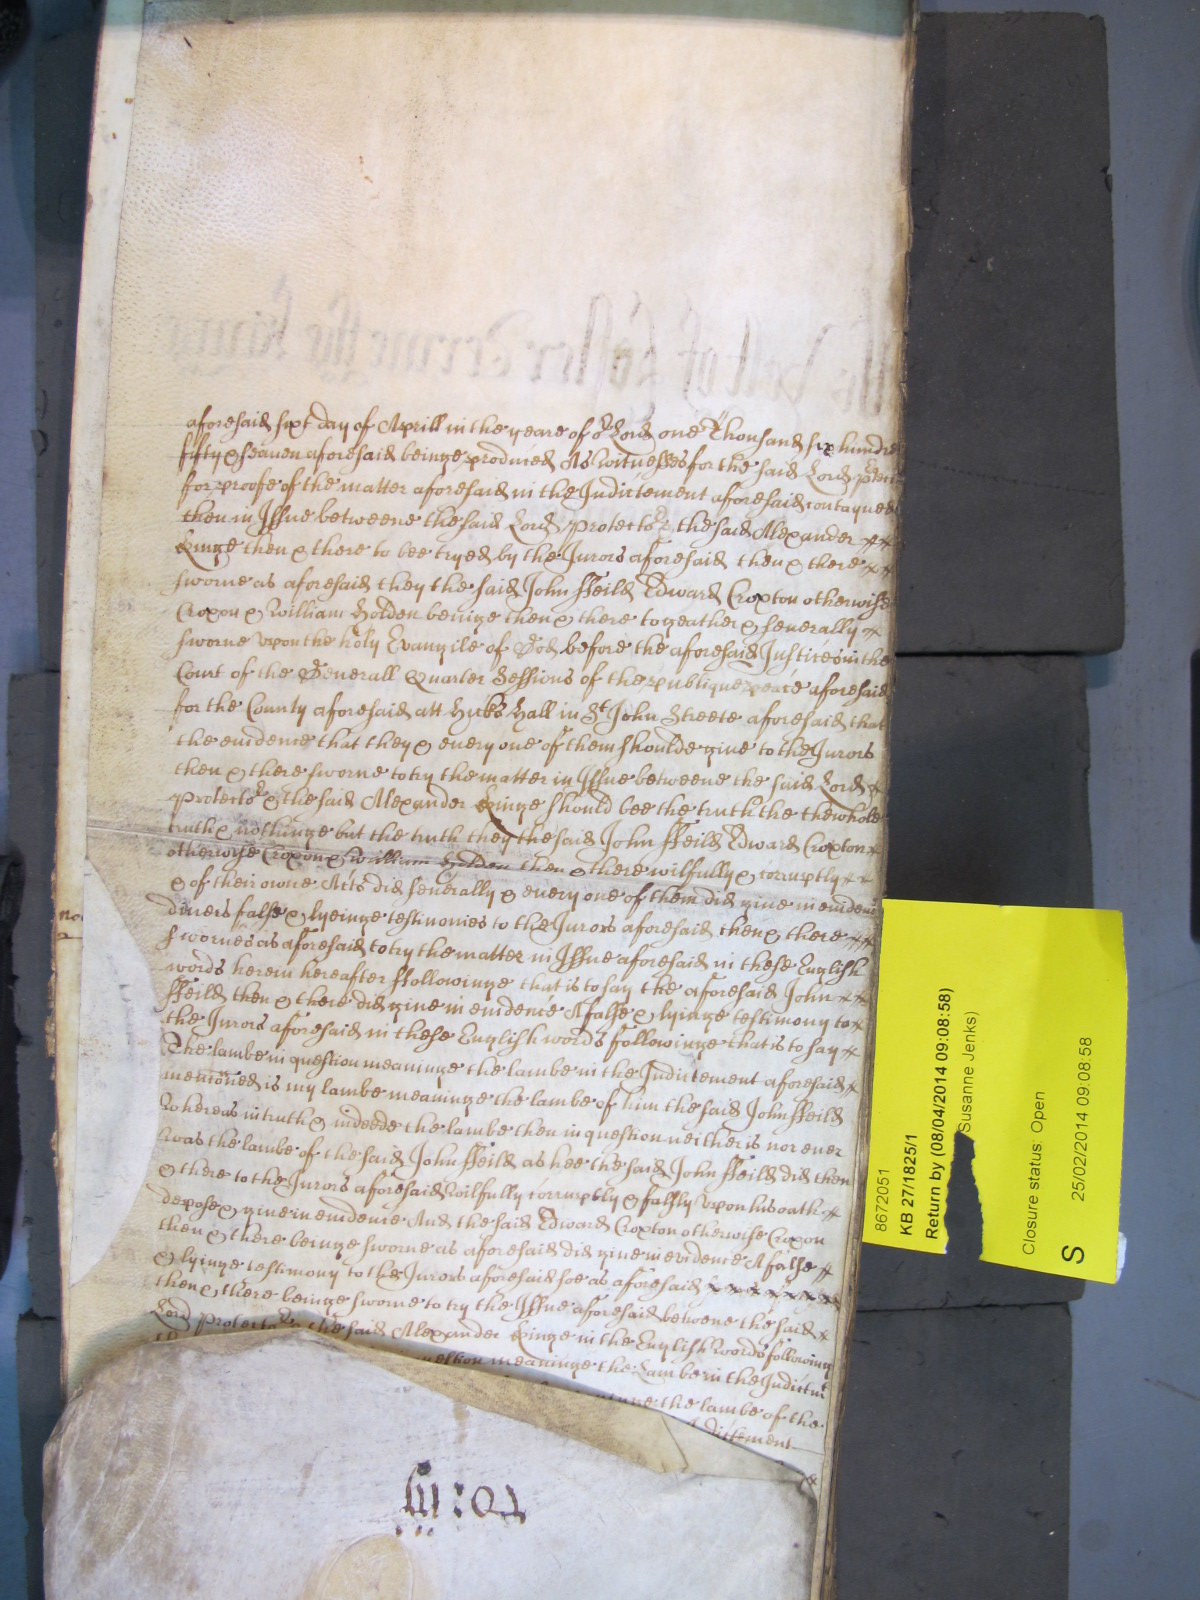 aforesaid sixt day of Aprill in the yeare of or Lord one Thousand six hundre
fifty & seaven aforesaid beinge produced As witnesses for the said Lord
for proofe of the matter aforesaid in the Indictement aforesaid contayned
then in Issue betweene the said Lord Protector & the said Alexander
Kinge then & there to bee tryed by the Jurors aforesaid then & there
sworne as aforesaid they the said John ffeild Edward Croxton otherwise
Croxon & William Holden beinge then & there togeather & severally
sworne upon the holy Evangile of God before the aforesaid Justices in the
Court of the Generall Quarter Sessions of the publique peace aforesaid
for the County aforesaid att Hicks Hall in St John Streete aforesaid that
the evidence that they & every one of them should give to the Jurors
then & there sworne to try the matter in Issue betweene the said Lord
Protector & the said Alexander Kinge should bee the truth the the whole
truth & nothinge but the truth they the said John ffeild Edward Croxton
otherwise Croxon & William Holden then & there wilfully & corruptly
& of their owne Acts did severally & every one of them did give in eviden
divers false & lyeinge testimonies to the Jurors aforesaid then & there
swornes as aforesaid to try the matter in Issue aforesaid in these English
words herein hereafter ffollowinge that is to say the aforesaid John
ffeild then & there did give in evidence A false & lyinge testimony to
the Jurors aforesaid in these English words followinge that is to say
The lambe in question meaninge the lambe in the Indictement aforesaid
mencioned is my lambe meaninge the lambe of him the said John ffeild
Whereas in truth & indeede the lambe then in question neither is nor ever
was the lambe of the said John ffeild as hee the said John ffeild did then
& there to the Jurors aforesaid Wilfully corruptly & falsly upon his oath
depose & give in evidence And the said Edward Croxton otherwise Croxon
then & there beinge sworne as aforesaid did give in evidence A false
& lyinge testimony to the Jurors aforesaid soe as aforesaid
then & there beinge sworne to try the Issue aforesaid betweene the said
Lord Protector & the said Alexander Kinge in the English words following
question meaninge the Lambe in the Indictmt
the lambe of the
Indictement
8672051
KB 27/1825/1
Return by (08/04/2014 09:08:58)
Susanne Jenks)
Closure status: Open
25/02/2014 09:08:58
S